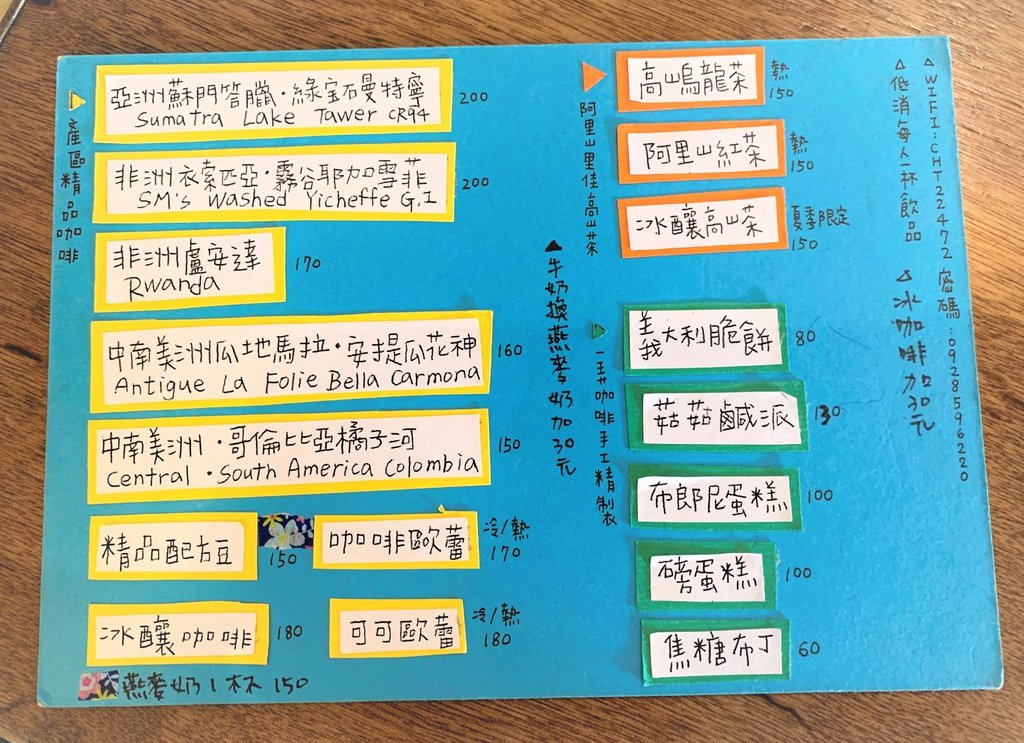 產區精品咖啡
亞洲蘇門答臘·綠宝石曼特寧
Sumatra Lake Tawer CR94
200
非洲衣索匹亞·霧谷耶加雪菲
SM's Washed Yicheffe G.I
200
非洲盧安達
Rwanda
170
中南美洲瓜地馬拉·安提瓜花神
Antigue La Folie Bella Carmona
160
中南美洲·哥倫比亞橘子河
Central·South America Colombia
150
精品配方豆
150
咖啡歐蕾
冷/熱
170
冰釀咖啡
180
可可歐蕾
冷/熱
180
燕麥奶1杯 150
牛奶換燕麥奶加30元
阿里山里佳高山茶
高山烏龍茶
熱
150
阿里山紅茶
熱
150
冰釀高山茶
夏季限定
150
義大利脆餅
80
菇菇鹹派
130
布郎尼蛋糕
100
磅蛋糕
100
焦糖布丁
60
WIFI:CHT22472 密碼:0928596220
低消每人一杯飲品
冰咖啡加30元